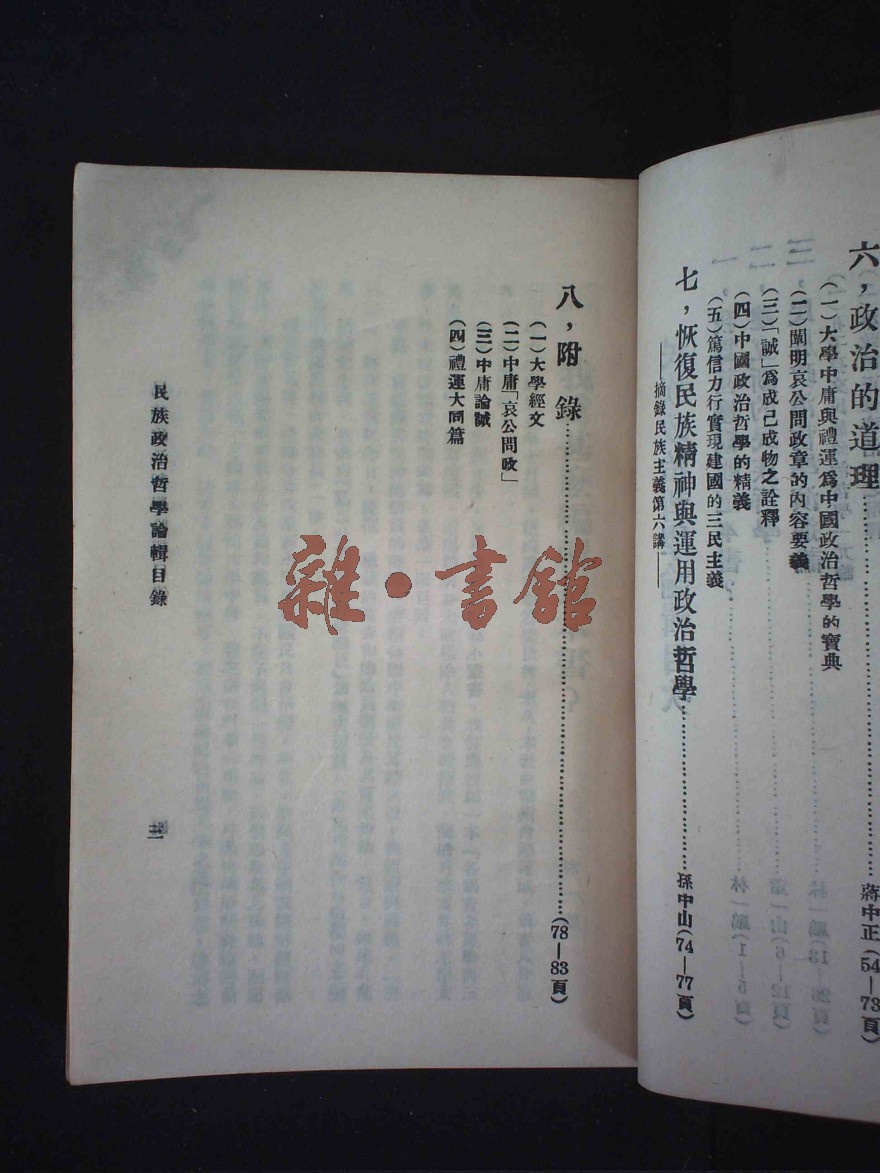 六，政治的道理……蔣中正（54—73頁）
（一）大學中庸與禮運爲中國政治哲學的寶典
（二）闡明哀公問政章的內容要義
（三）「誠」爲成己成物之詮釋
（四）中國政治哲學的精義
（五）篤信力行實現建國的三民主義
七，恢復民族精神與運用政治哲學……孫中山（74—77頁）
——摘錄民族主義第六講——
八，附　錄……（78—83頁）
（一）大學經文
（二）中庸「哀公問政」
（三）中庸論誠
（四）禮運大同篇
民族政治哲學論輯目錄
三
雜·書館